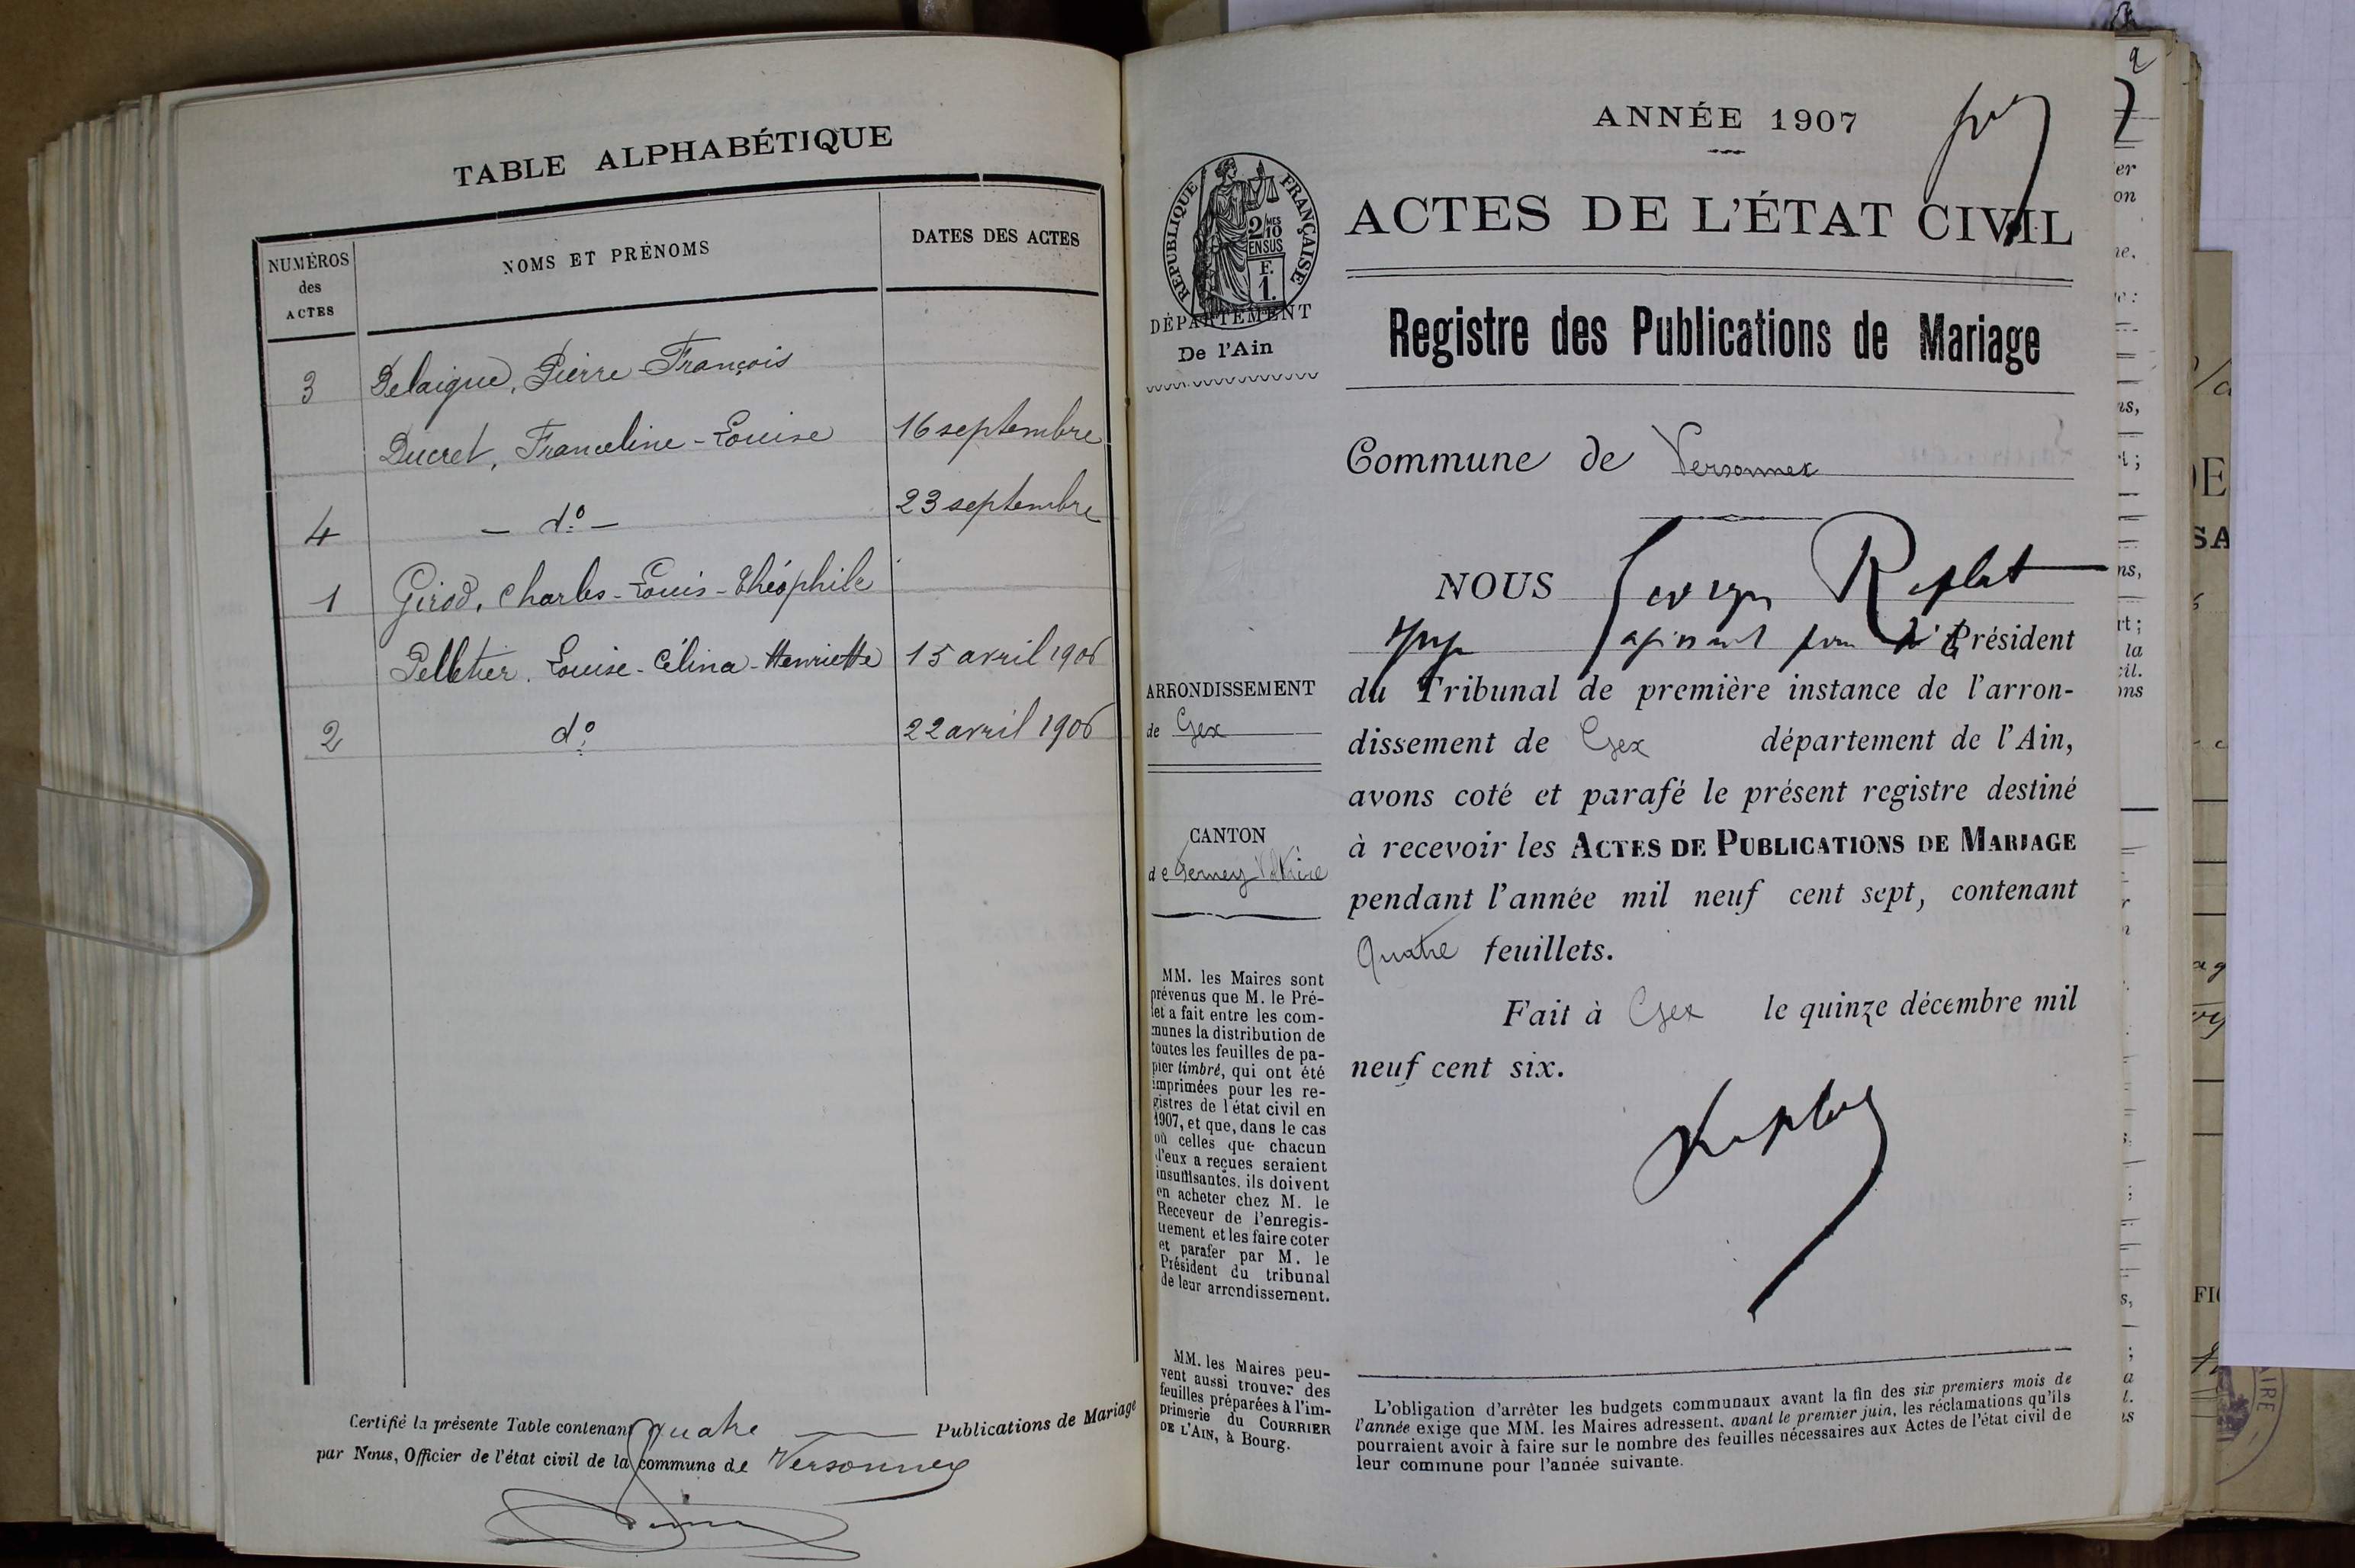 TABLE ALPHABÉTIQUE
NUMÉROS des ACTES
NOMS ET PRÉNOMS
DATES DES ACTES
3 Delaigue, Pierre-François
Ducret, Franceline-Louise 16 septembre
4 – d.º – 23 septembre
1 Girod, Charles-Louis-Théophile
Pelletier, Louise-Célina-Henriette 15 avril 1906
2 d.º 22 avril 1906
Certifié la présente Table contenant quatre Publications de Mariage
par Nous, Officier de l'état civil de la commune de Versonnex
ANNÉE 1907
RÉPUBLIQUE FRANÇAISE
2/10 MES
EN SUS
F. 1.
ACTES DE L'ÉTAT CIVIL
DÉPARTEMENT
De l'Ain
Registre des Publications de Mariage
Commune de Versonnex
NOUS Replat
Président
ARRONDISSEMENT
de Gex
du Tribunal de première instance de l'arron-
dissement de Gex département de l'Ain,
avons coté et parafé le présent registre destiné
CANTON
de Ferney Voltaire
à recevoir les ACTES DE PUBLICATIONS DE MARIAGE
pendant l'année mil neuf cent sept, contenant
Quatre feuillets.
Fait à Gex le quinze décembre mil
neuf cent six.
MM. les Maires sont
prévenus que M. le Pré-
fet a fait entre les com-
munes la distribution de
toutes les feuilles de pa-
pier timbré, qui ont été
imprimées pour les re-
gistres de l'état civil en
1907, et que, dans le cas
où celles que chacun
d'eux a reçues seraient
insuffisantes, ils doivent
en acheter chez M. le
Receveur de l'enregis-
trement et les faire coter
et parafer par M. le
Président du tribunal
de leur arrondissement.
MM. les Maires peu-
vent aussi trouver des
feuilles préparées à l'im-
primerie du COURRIER
DE L'AIN, à Bourg.
L'obligation d'arrêter les budgets communaux avant la fin des six premiers mois de
l'année exige que MM. les Maires adressent, avant le premier juin, les réclamations qu'ils
pourraient avoir à faire sur le nombre des feuilles nécessaires aux Actes de l'état civil de
leur commune pour l'année suivante.